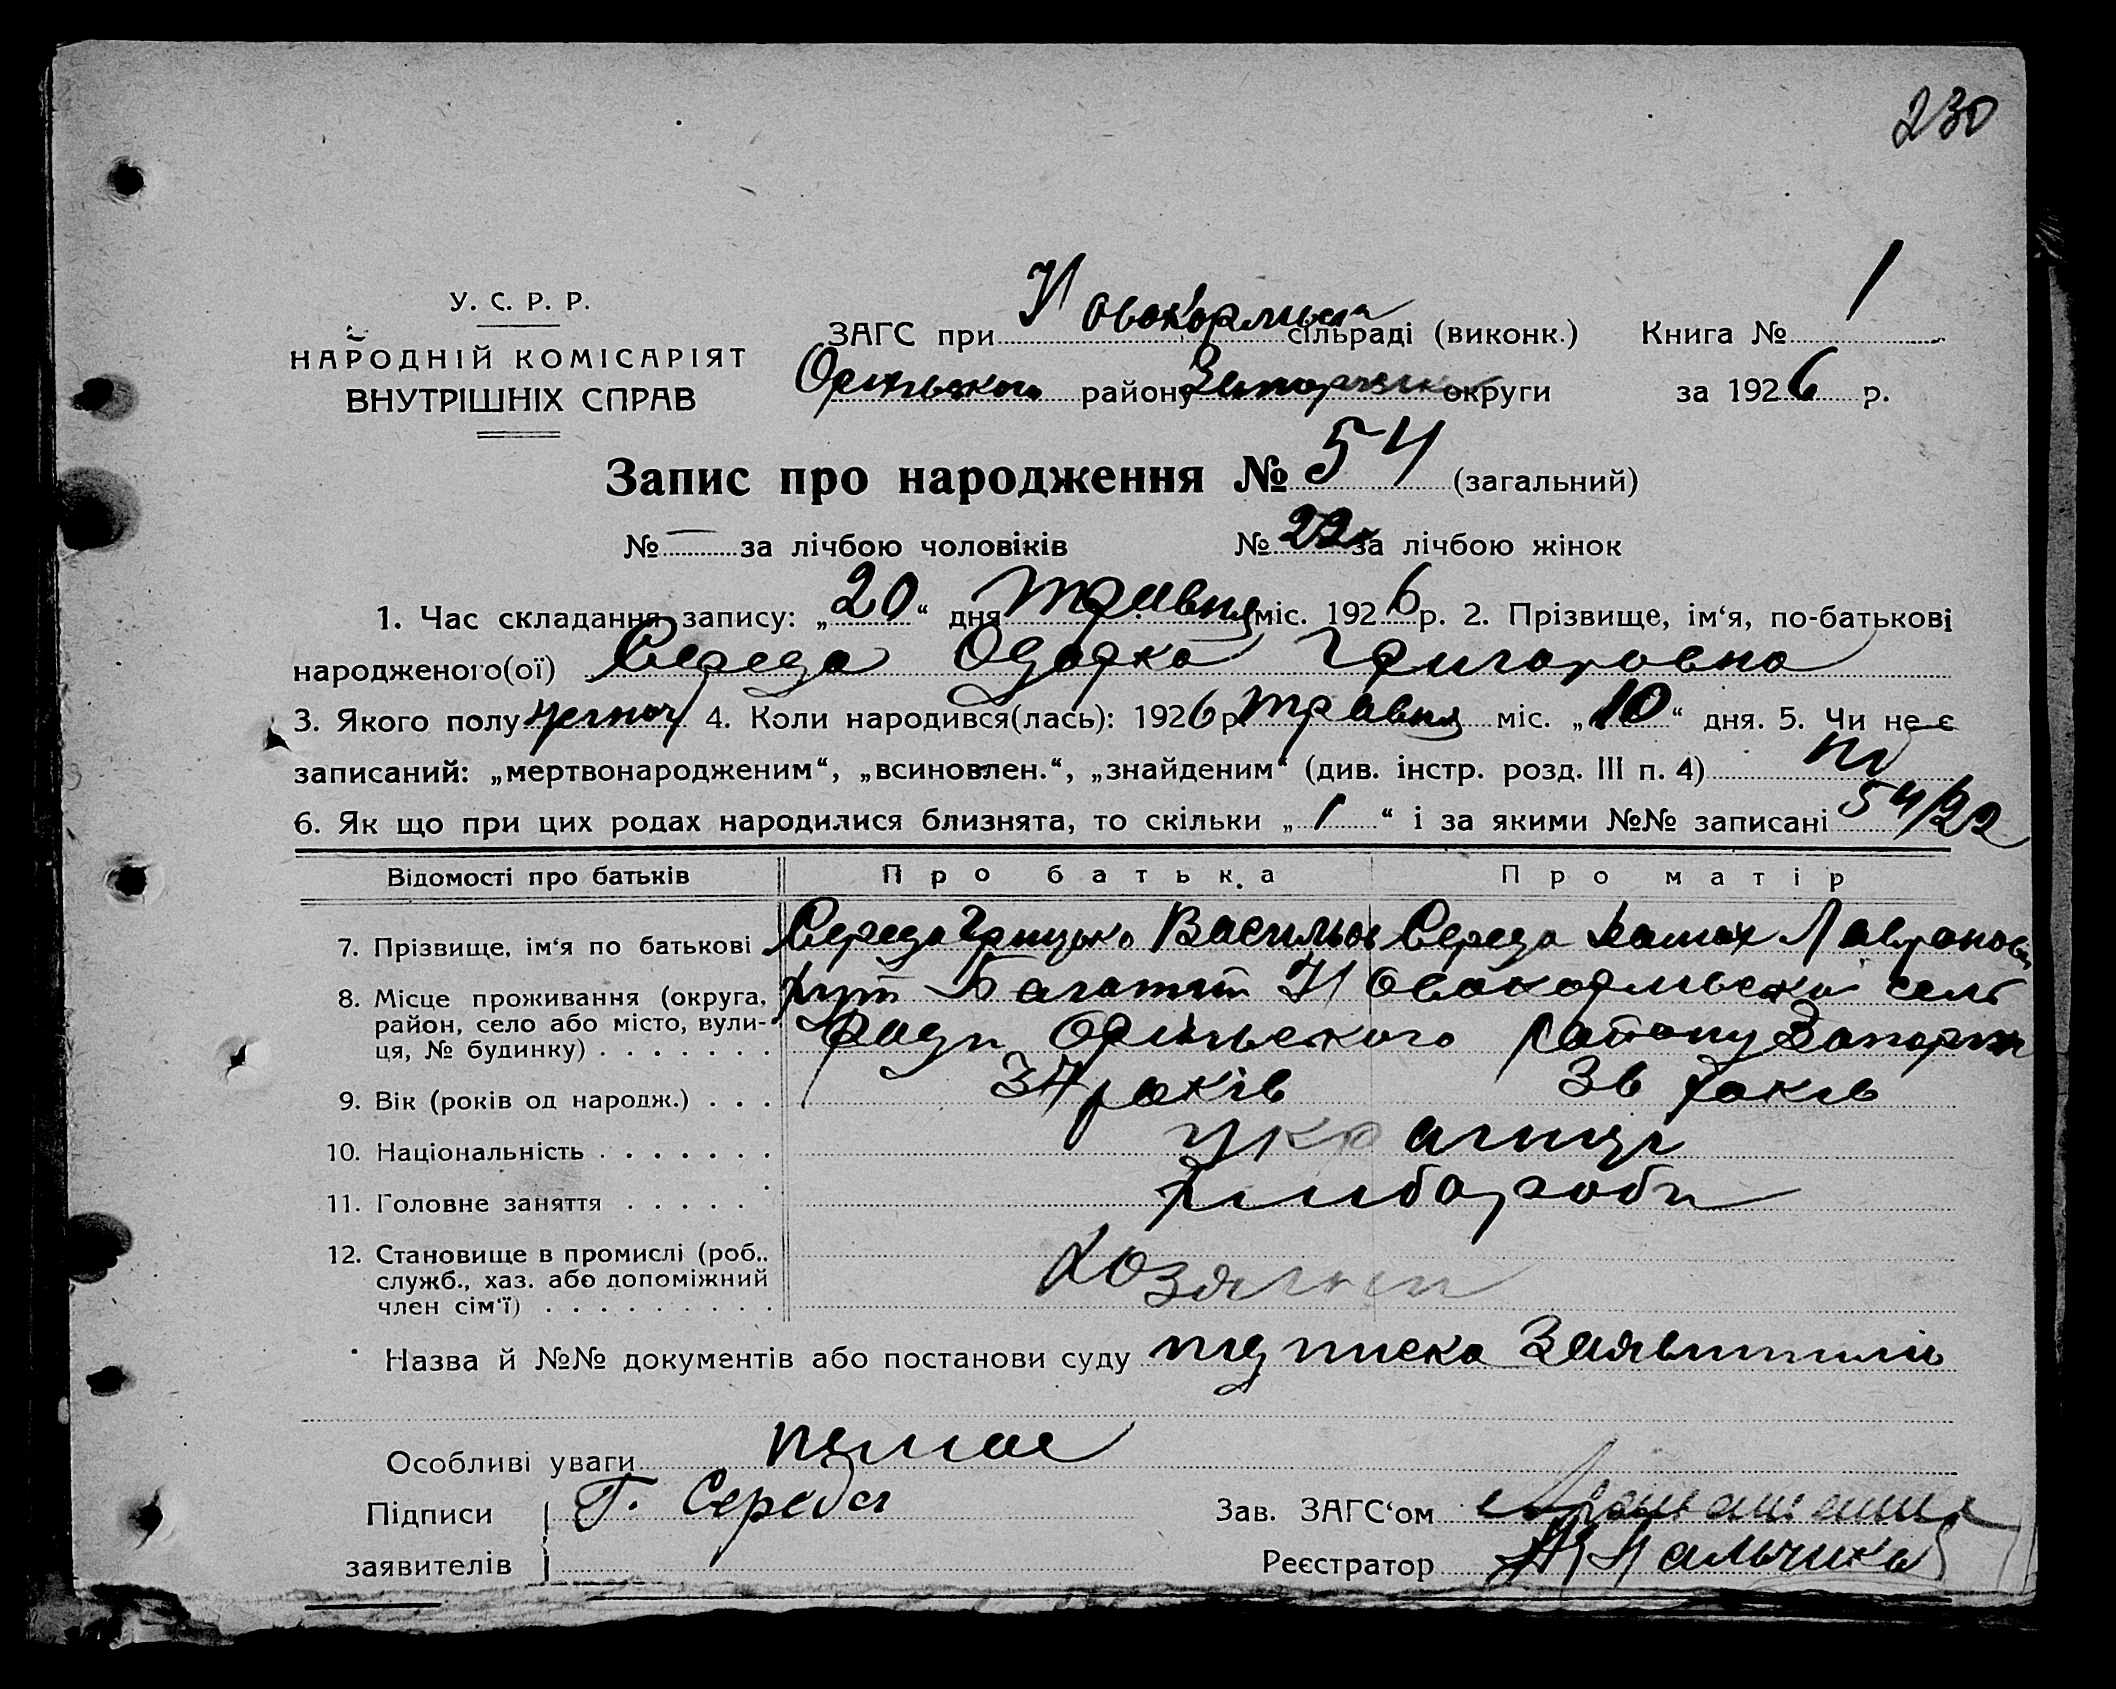 230
У. С. Р. Р.
НАРОДНІЙ КОМІСАРІЯТ
ВНУТРІШНІХ СПРАВ
ЗАГС при Новокорльск сільраді (виконк.) Книга № 1
Орільского району Запоріжськ округи за 1926 р.
Запис про народження № 54 (загальний)
№ — за лічбою чоловіків № 22 за лічбою жінок
1. Час складання запису: „20“ дня травня міс. 1926 р. 2. Прізвище, ім‘я, по-батькові
народженого(ої) Середа Одарка Григоровна
3. Якого полу жіноч 4. Коли народився(лась): 1926 р травня міс. „10“ дня. 5. Чи не є
записаний: „мертвонародженим“, „всиновлен.“, „знайденим“ (див. інстр. розд. III п. 4) ні
6. Як що при цих родах народилися близнята, то скільки „1“ і за якими №№ записані 54/22
Відомості про батьків Про батька Про матір
7. Прізвище, ім‘я по батькові Середа Грицько Васильов Середа Лавронов
8. Місце проживання (округа, район, село або місто, вулиця, № будинку) хут Багатий Новокорльської сель
ради Орільского району Запоріж
9. Вік (років од народж.) 37 років 36 років
10. Національність українці
11. Головне заняття хлібороби
12. Становище в промислі (роб., служб., хаз. або допоміжний член сім‘ї) хозяіни
Назва й №№ документів або постанови суду підписка Заявителів
Особливі уваги немає
Підписи Г. Середа Зав. ЗАГС‘ом
заявителів Реєстратор Нальчика